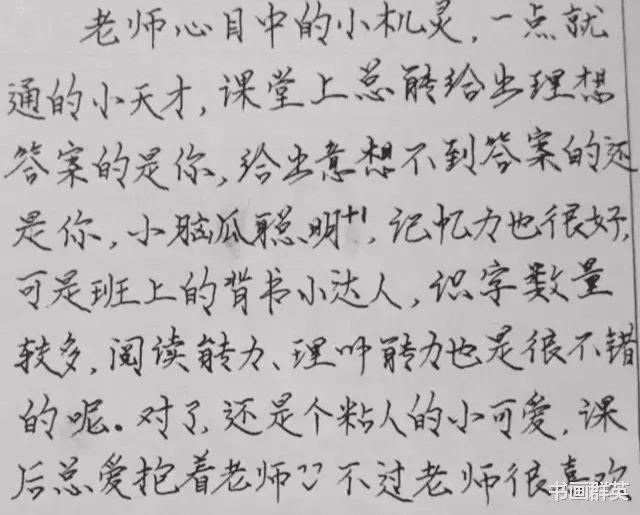 老师心目中的小机灵,一点就
通的小天才,课堂上总能给出理想
答案的是你,给出意想不到答案的还
是你,小脑瓜聪明+1,记忆力也很好,
可是班上的背书小达人,识字数量
较多,阅读能力、理解能力也是很不错
的呢。对了,还是个粘人的小可爱,课
后总爱抱着老师 不过老师很喜欢
书画群英